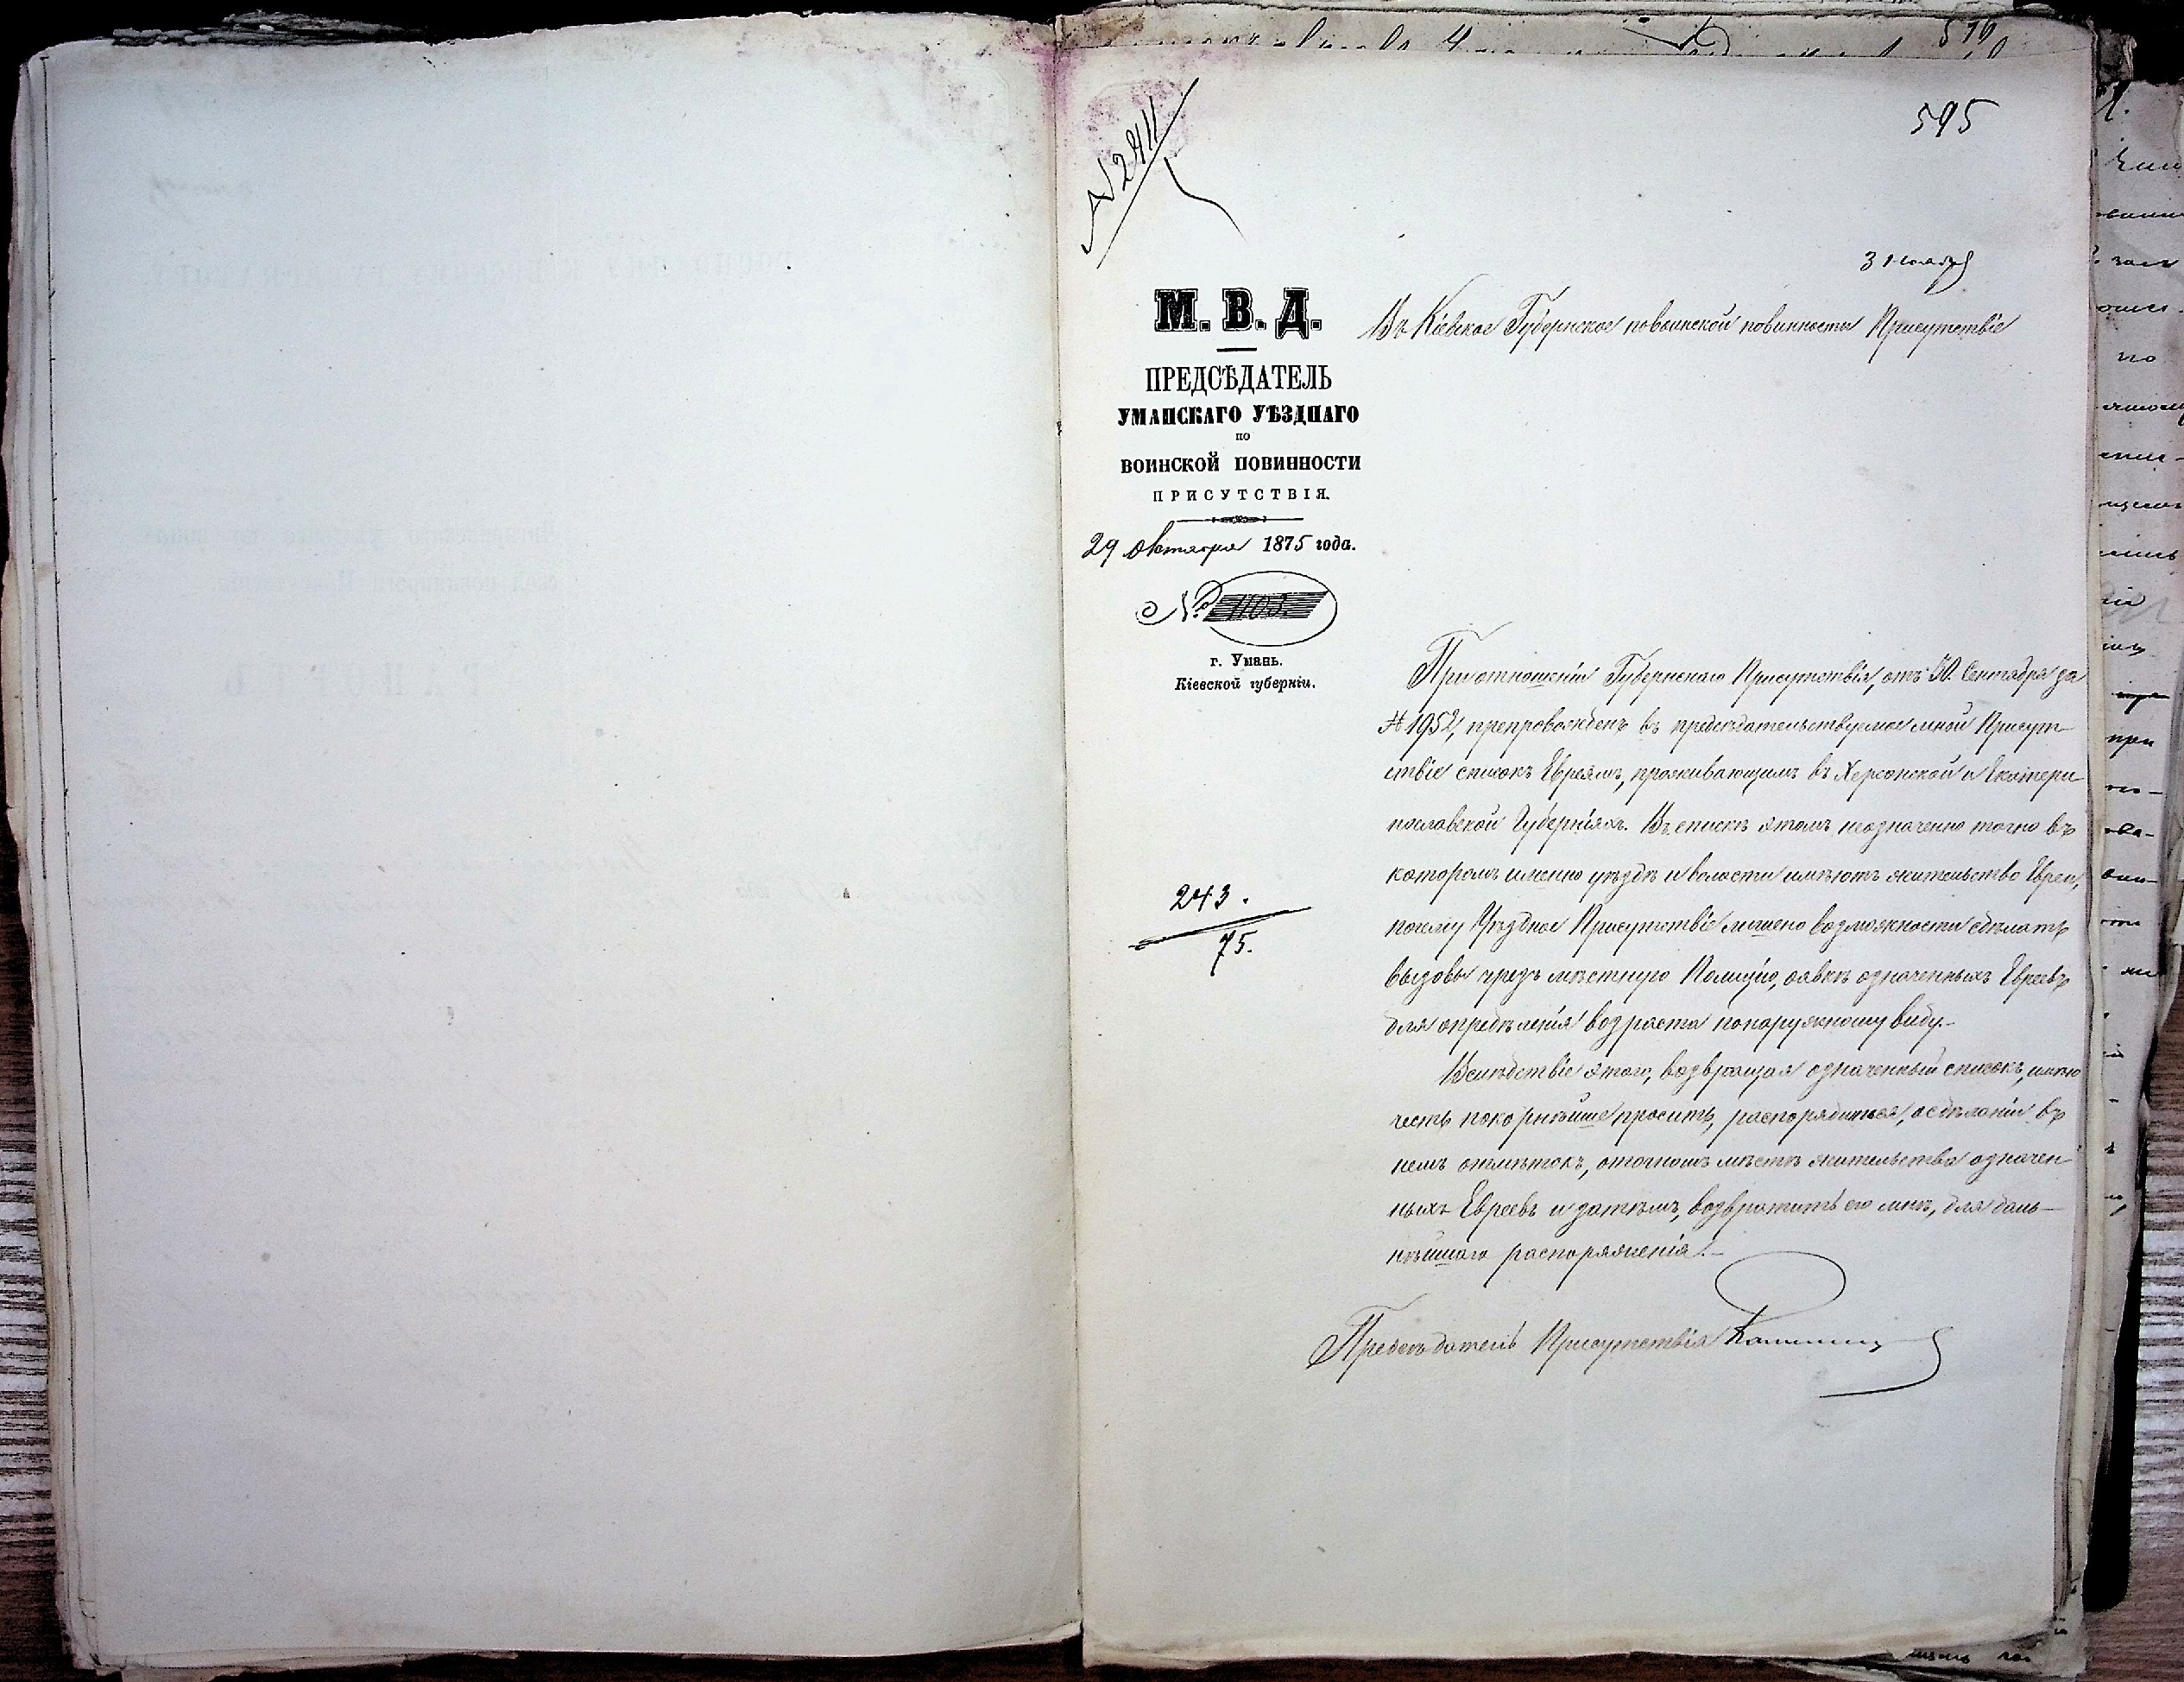 595
№ 2411
3 ноября
М. В. Д.
ПРЕДСѢДАТЕЛЬ
УМАНСКАГО УѢЗДНАГО
ПО
ВОИНСКОЙ ПОВИННОСТИ
ПРИСУТСТВІЯ.
29 Октября 1875 года.
№ 1103.
г. Умань.
Кіевской губерніи.
243.
75.
Въ Кіевское Губернское повоинской повинности Присутствіе
При отношеніи Губернскаго Присутствія, отъ 30. Сентября за
№ 1952, препровожденъ въ предсѣдательствуемое мной Присут-
ствіе списокъ Евреямъ, проживающимъ въ Херсонской и Екатери
нославской Губерніяхъ. Въ спискѣ этомъ неозначенно точно въ
которомъ именно уѣздѣ и волости имѣютъ жительство Евреи,
почему Уѣздное Присутствіе лишено возможности сдѣлать
вызовы чрезъ мѣстную Полицію, оявкѣ означенныхъ Евреевъ
для опредѣленія возраста понаружному виду.-
Вслѣдствіе этого, возвращая означенный списокъ, имѣю
честь покорнѣйше просить, распорядиться, осдѣланіи въ
немъ отмѣтокъ, оточномъ мѣстѣ жительства означен
ныхъ Евреевъ и затѣмъ, возвратить его мнѣ, для даль-
нѣйшаго распоряженія.-
Предсѣдатель Присутствія